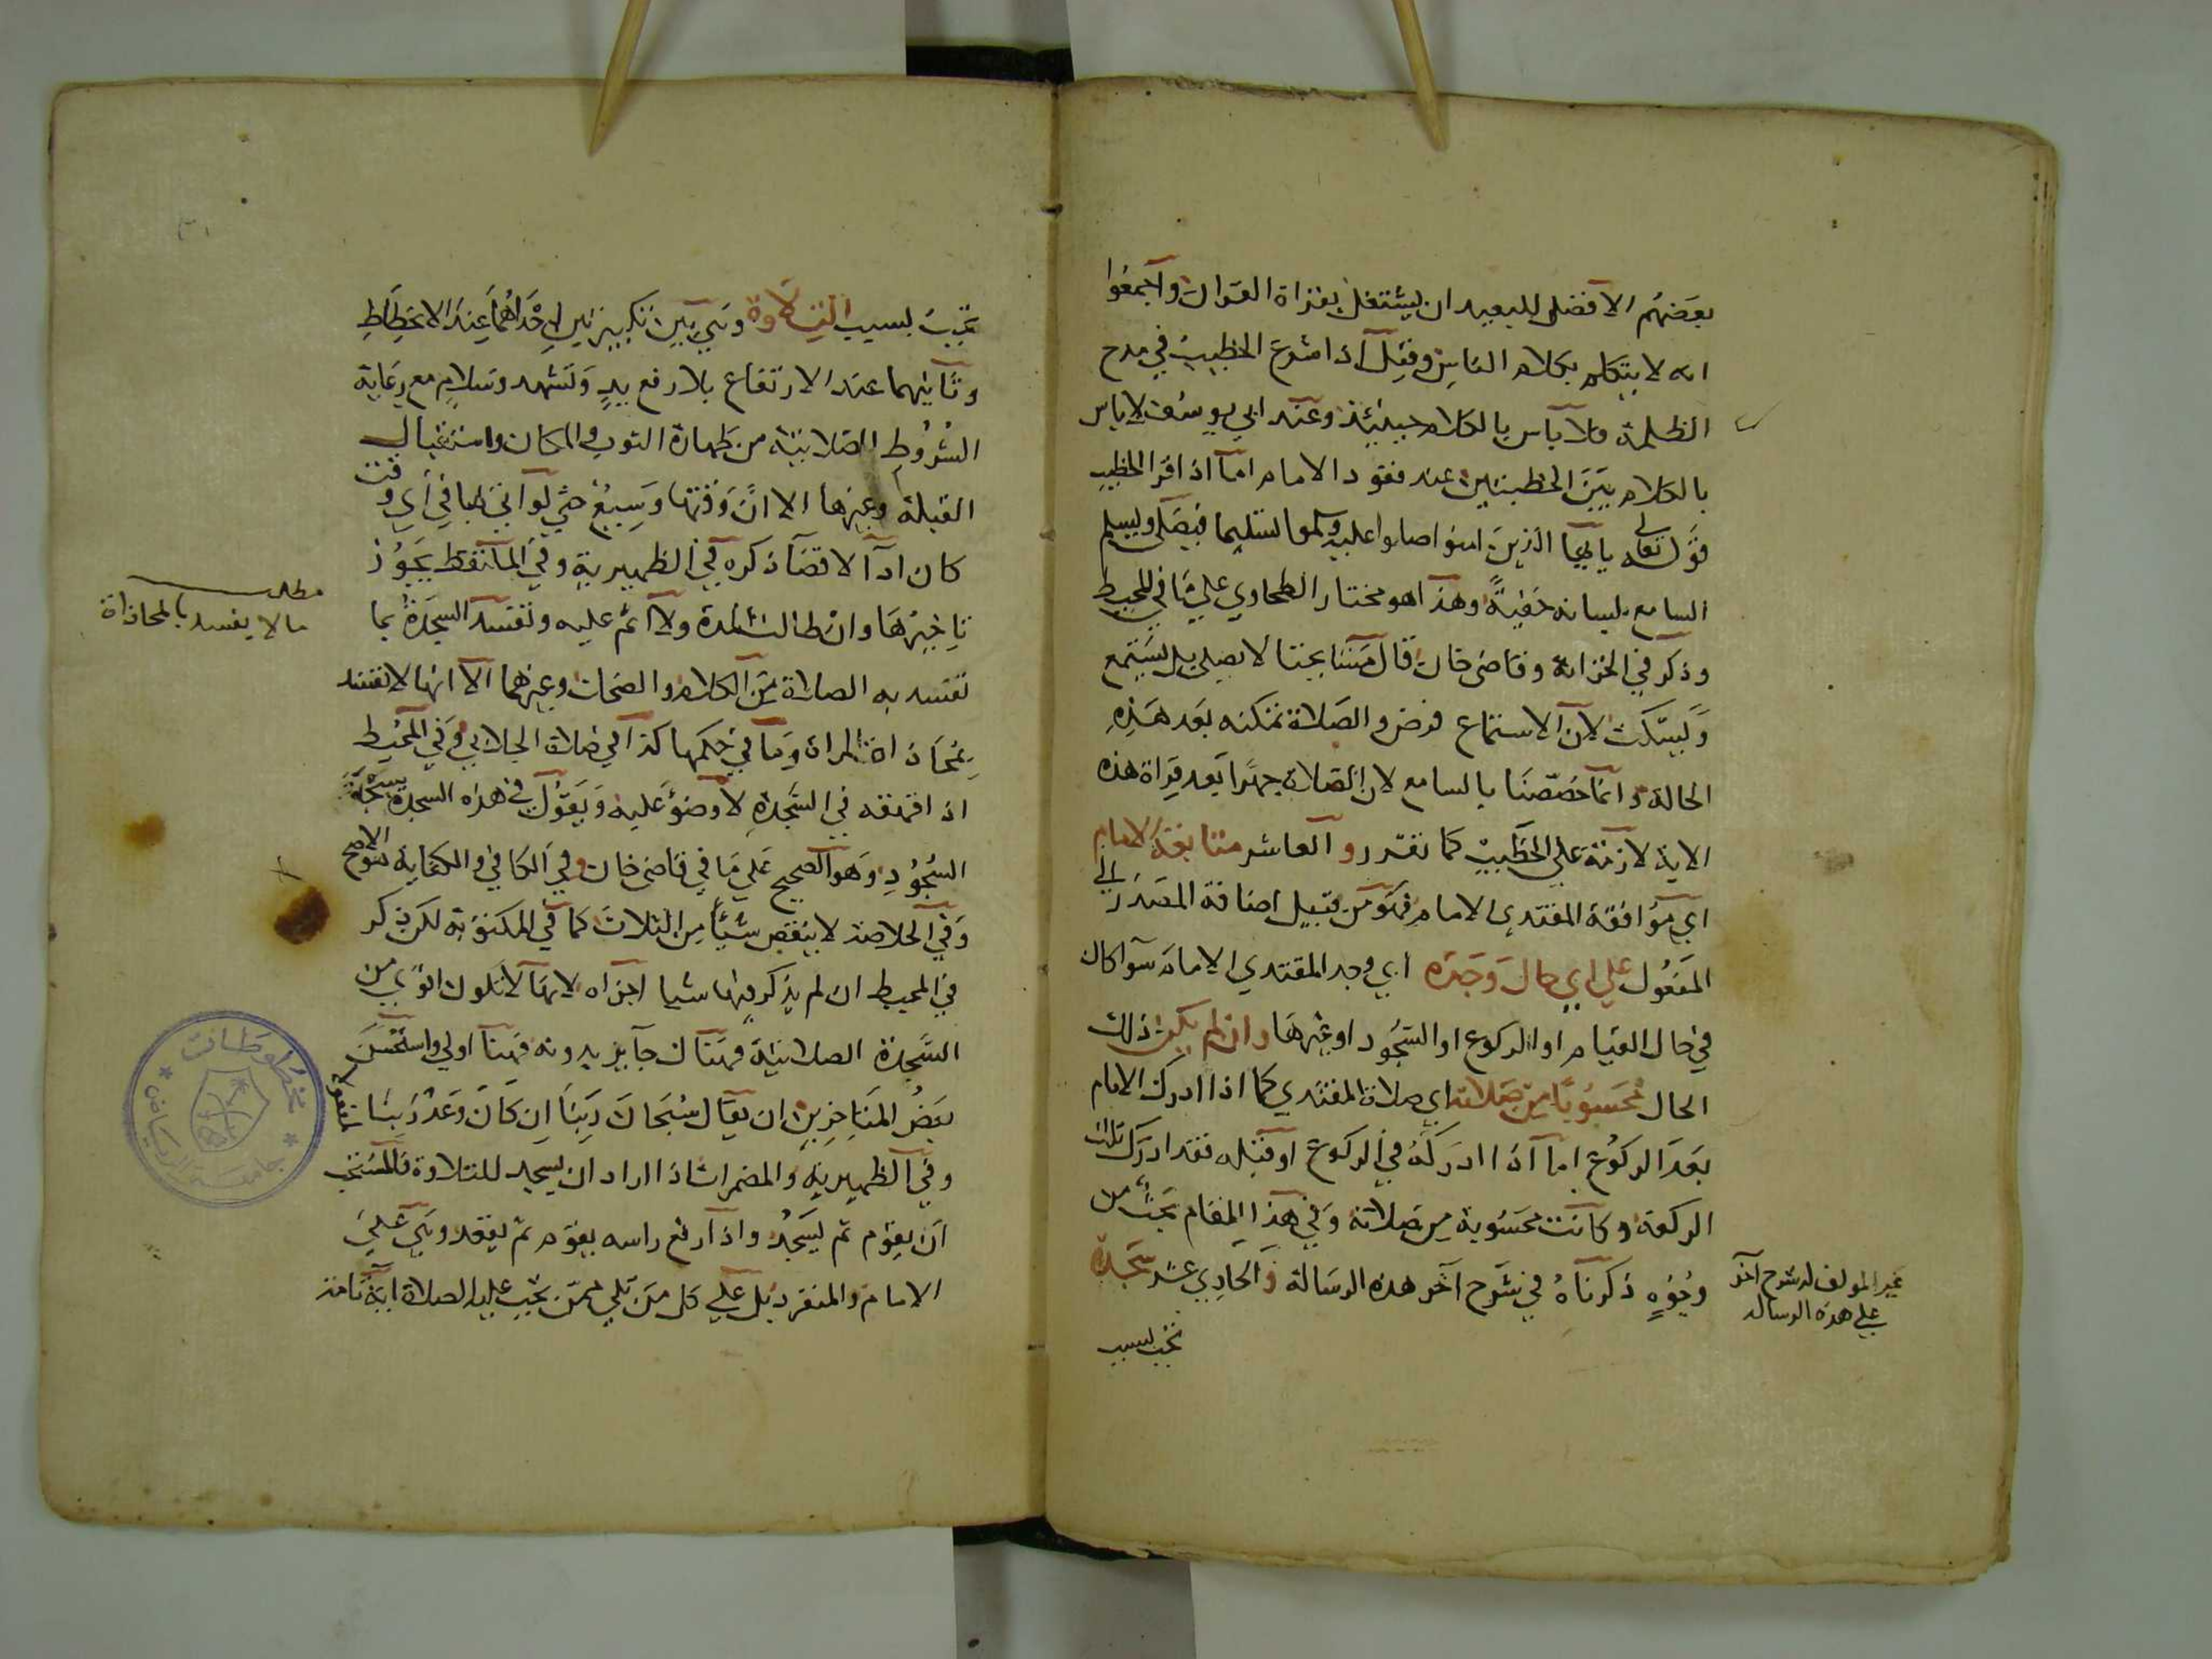 بعضهم الافضل للبعيد ان يشتغل بقراة القران واجمعوا
انه لا يتكلم بكلام الناس وقيل اذا شرع الخطيب في مدح
الظلمة فلا باس بالكلام حينئذ وعند ابي يوسف لا باس
بالكلام بين الخطبتين عند قعود الامام اما اذا قرا الخطيب
قوله تعالى يا ايها الذين امنوا صلوا عليه وسلموا تسليما فيصلي ويسلم
السامع بلسانه خفية وهذا هو مختار الطحاوي على ما في المحيط
وذكر في الخزانة وقاضي خان قال مشايخنا لا يصلي بل يستمع
ويسكت لان الاستماع فرض والصلاة تمكنه بعد هذه
الحالة وانما خصصنا بالسامع لان الصلاة جهرا بعد قراة هذه
الاية لازمة على الخطيب كما تقرر والعاشر متابعة الامام
اي موافقة المقتدي الامام فهو من قبيل اضافة المصدر الى
المفعول على اي حال وجده اي وجد المقتدي الامام سوا كان
في حال القيام او الركوع او السجود او غيرها وان لم يكن ذلك
الحال محسوبا من صلاته اي صلاة المقتدي كما اذا ادرك الامام
بعد الركوع اما اذا ادركه في الركوع او قبله فقد ادرك تلك
الركعة وكانت محسوبة من صلاته وفي هذا المقام بحث من
وجوه ذكرناه في شرح آخر هذه الرسالة والحادي عشر سجدة
غير المولف له شرح آخر
على هذه الرسالة
تجب بسبب
تجب بسبب التلاوة وهي بين تكبيرتين احداهما عند الانحطاط
وثانيهما عند الارتفاع بلا رفع يد وتشهد وسلام مع رعاية
الشروط الصلاتية من طهارة الثوب والمكان واستقبال
القبلة وغيرها الا ان وقتها وسيع حتى لو اتى بها في اي وقت
كان اداً لا قضاً ذكره في الظهيرية وفي الملتقط يجوز
تاخيرها وان طالت المدة ولا اثم عليه وتفسد السجدة بما
تفسد به الصلاة من الكلام والضحك وغيرهما الا انها لا تفسد
بمحاذاة المراة وما في حكمها كذا في صلاة الجلابي وفي المحيط
اذا قهقه في السجدة لا وضؤ عليه ويقول في هذه السجدة تسبيحة
السجود وهو الصحيح على ما في قاضي خان وفي الكافي والكفاية هو الاصح
وفي الخلاصة لا ينقص شيأ من الثلاث كما في المكتوبة لكن ذكر
في المحيط ان لم يذكر فيها شيا اجزاه لانها لا تكون اقوى من
السجدة الصلاتية فهناك جايز بدونه فهنا اولى واستحسن
بعض المتاخرين ان يقال سبحان ربنا ان كان وعد ربنا لمفعولا
وفي الظهيرية والمضمرات اذا اراد ان يسجد للتلاوة فالمستحب
ان يقوم ثم يسجد واذا رفع راسه يقوم ثم يقعد وهي على
الامام والمنفرد بل على كل من تلي ممن تجب عليه الصلاة اية تامة
مطلب
ما لا يفسد بالمحاذاة
مخطوطات
جامعة الرياض